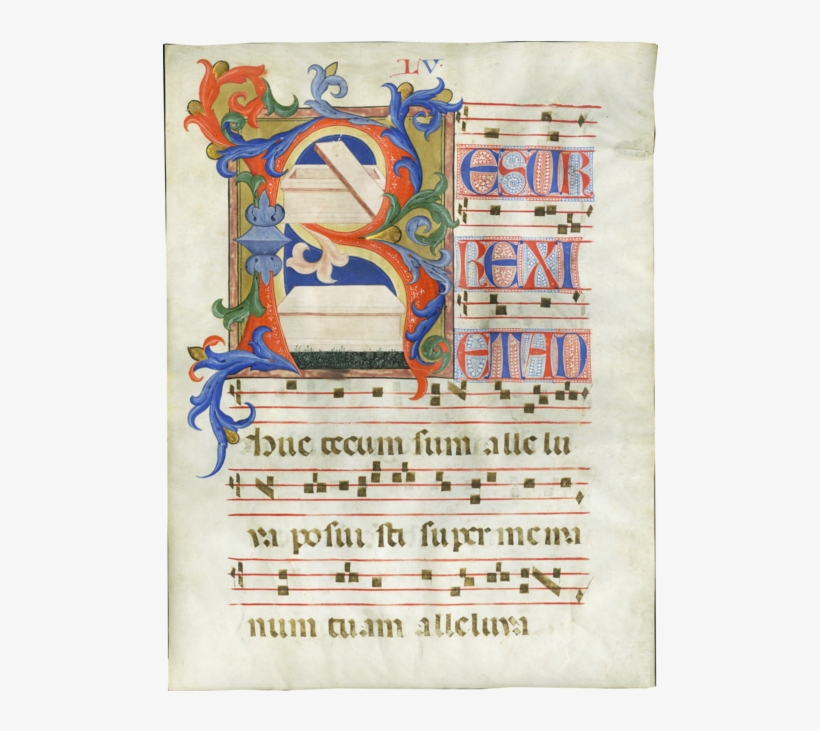 LV·
RESUR
REXI
ET AD
huc tecum sum alle lu
ya posui sti super me ma
num tuam alleluya